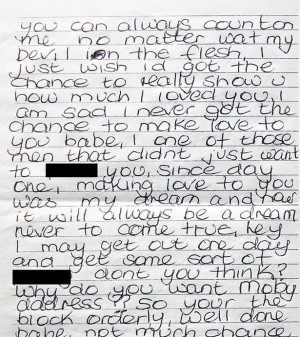 you can always count on
me no matter wat my
Devil ion the flesh, I
just wish id got the
chance to really show u
how much I loved you, I
am sad I never got the
chance to make love to
you babe, I one of those
men that didnt just want
to you, since day
one, making love to you
was my dream and now
it will always be a dream
never to come true, hey
I may get out one day
and get some sort of
dont you think?
why do you want moby
address? So your the
block orderly, well done
babe, not much chance